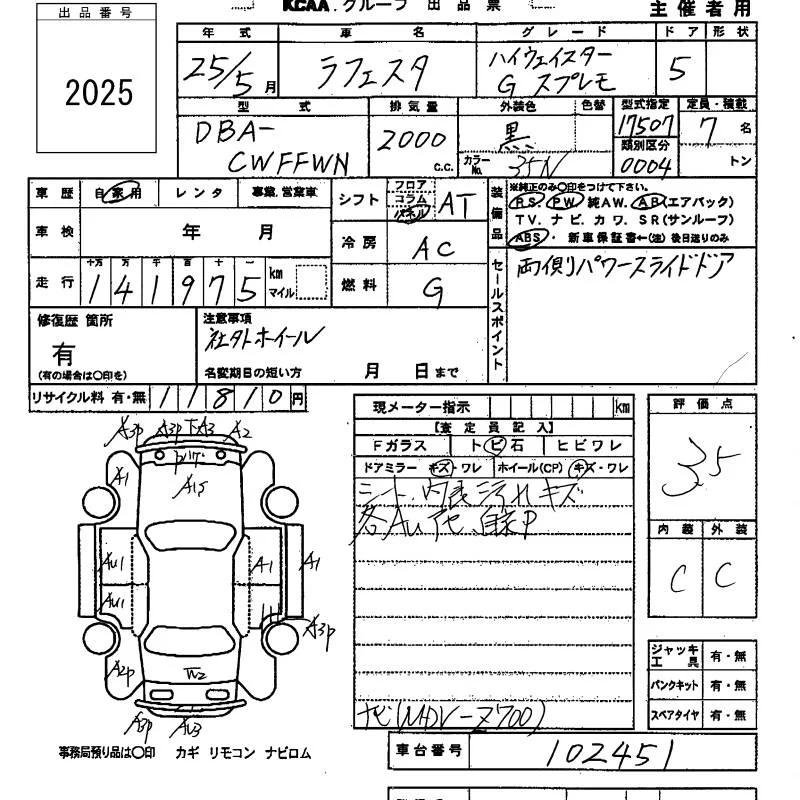 KCAA グループ 出品票
主催者用
出品番号
2025
年式 車名 グレード ドア 形状
25/5月 ラフェスタ ハイウェイスター
G スプレモ 5
型式 排気量 外装色 色替 型式指定 定員・積載
DBA-
CWFFWN 2000 c.c. 黒 17507 7名
カラーNo. 35N 類別区分 0004 トン
車歴 自家用 レンタ 事業.営業車
シフト フロア コラム パネル AT
装備品 ※純正のみ〇印をつけて下さい。
PS PW 純AW. AB(エアバック)
TV. ナビ. カワ. SR(サンルーフ)
ABS・ 新車保証書←(注) 後日送りのみ
車検 年 月
冷房 AC
走行 十万 万 千 百 十 一
141975 km マイル
燃料 G
セールスポイント 両側リパワースライドドア
修復歴 箇所
有
(有の場合は〇印を)
注意事項
社外ホイール
名変期日の短い方 月 日まで
リサイクル料 有・無 11810円
現メーター指示 km
【査定員記入】
Fガラス トビ石 ヒビワレ
ドアミラー キズ・ワレ ホイール(CP) キズ・ワレ
シート、内張汚れキズ
ナビ(MDV-Z700)
評価点
3.5
内装 外装
C C
ジャッキ 工具 有・無
パンクキット 有・無
スペアタイヤ 有・無
A3p A3p A3 A2
A1 A15
AU1 A1 A1
AU1
A3p
A2p W2
A3p AU3
事務局預り品は〇印 カギ リモコン ナビロム
車台番号 102451